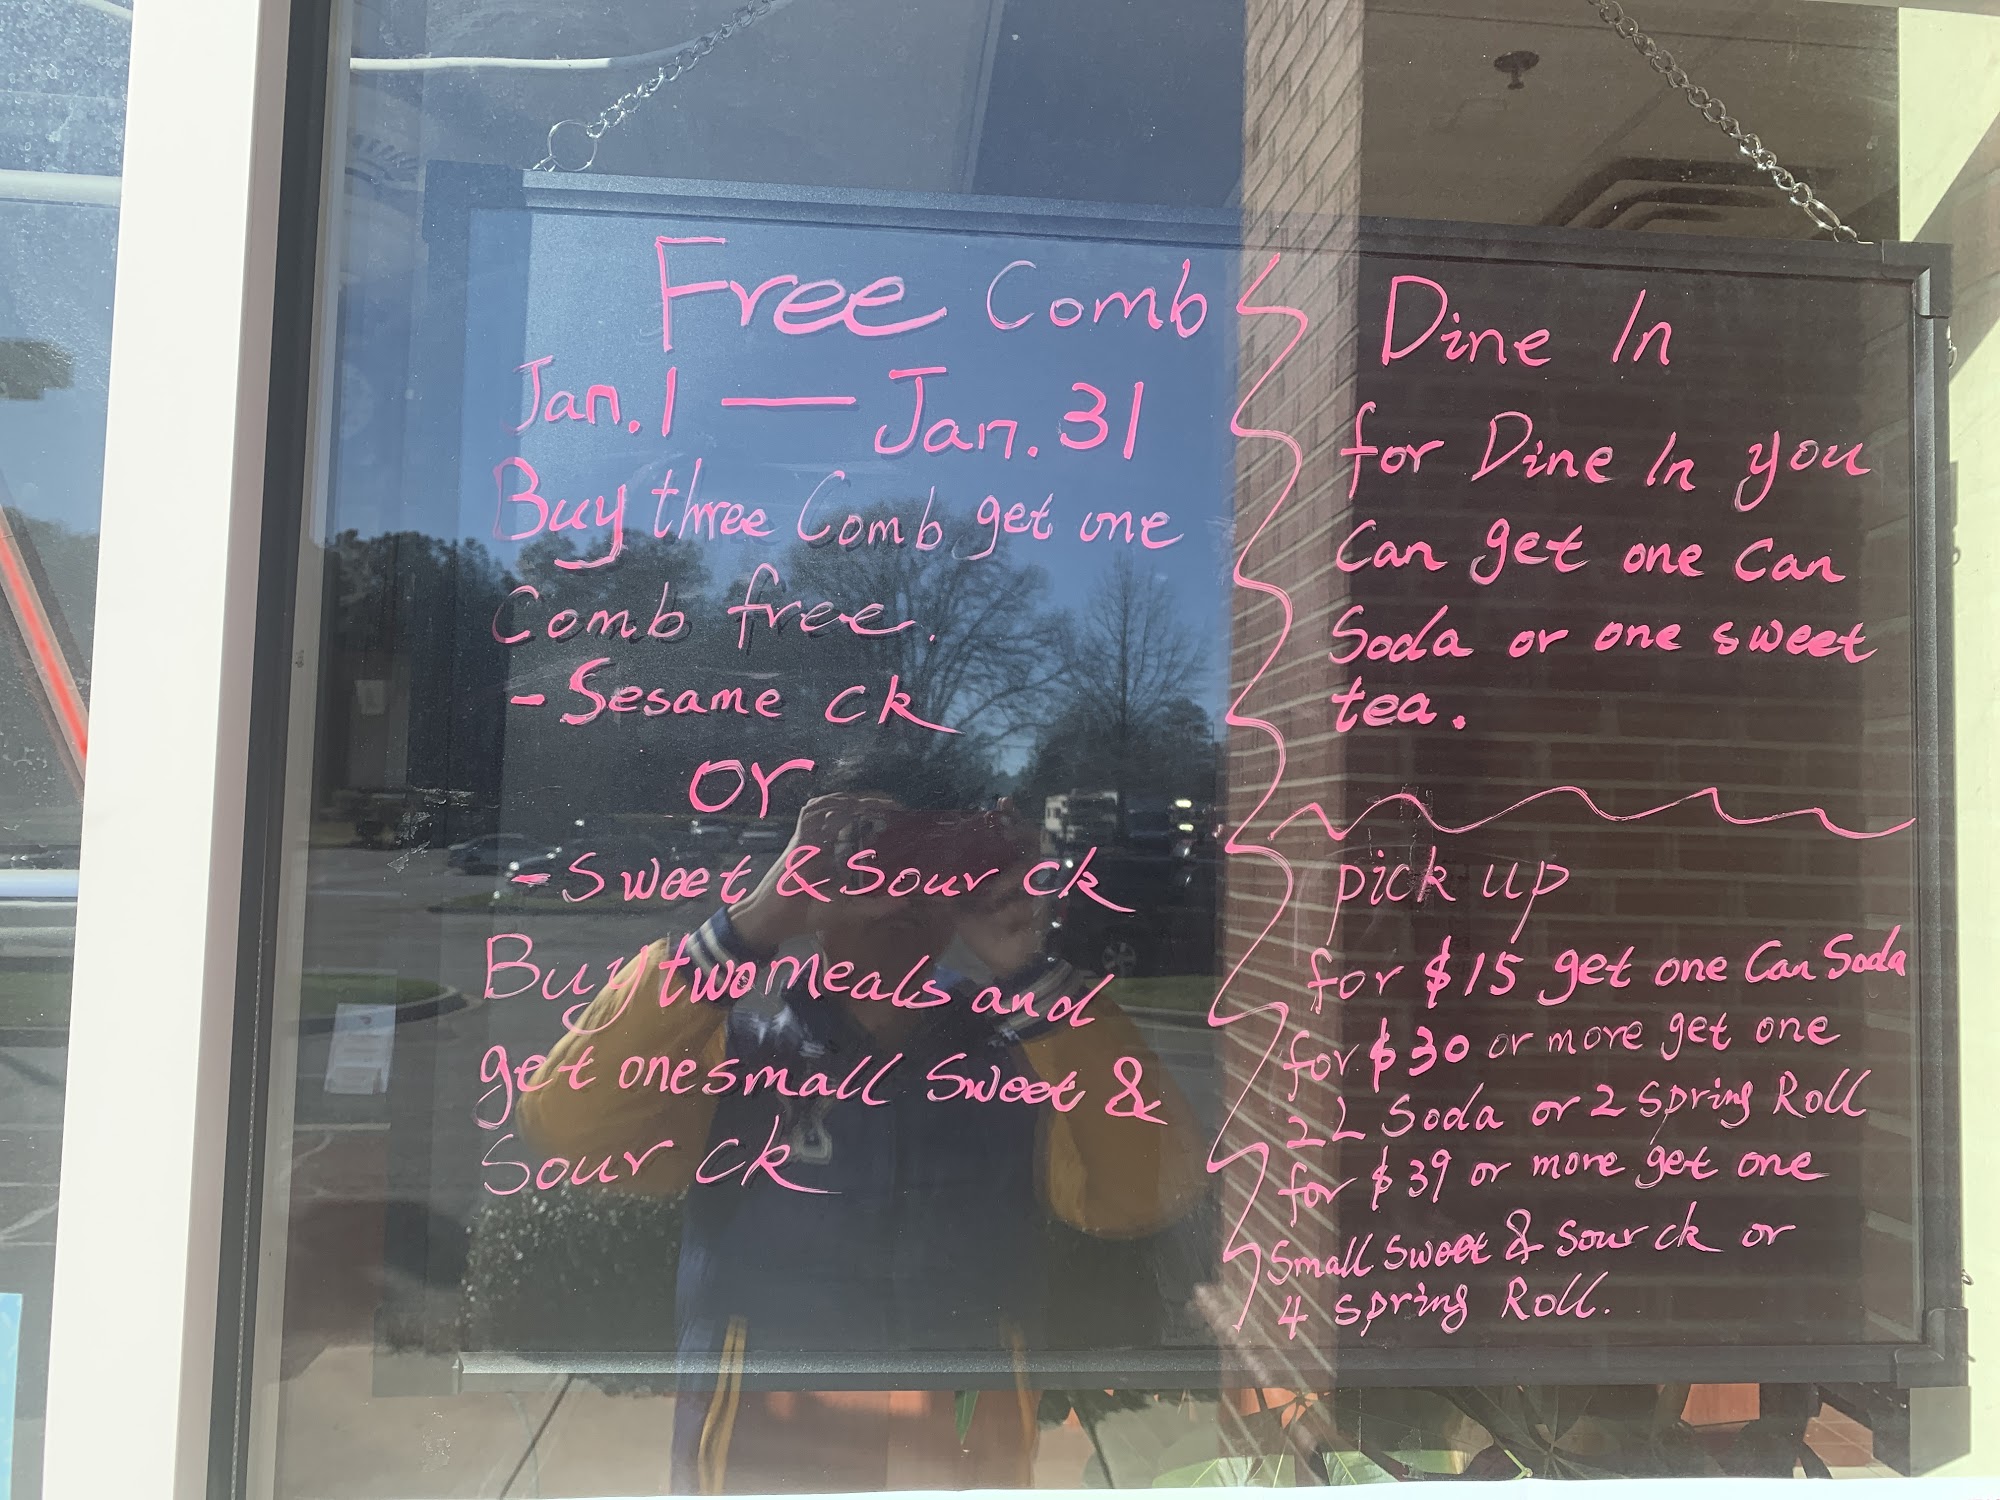 Free Comb
Jan. 1 — Jan. 31
Buy three Comb get one
Comb free.
- Sesame ck
or
- Sweet & Sour ck
Buy two meals and
get one small Sweet &
Sour ck
Dine In
for Dine In you
Can get one Can
Soda or one sweet
tea.
pick up
for $15 get one Can Soda
for $30 or more get one
2L Soda or 2 Spring Roll
for $39 or more get one
Small Sweet & Sour ck or
4 Spring Roll.